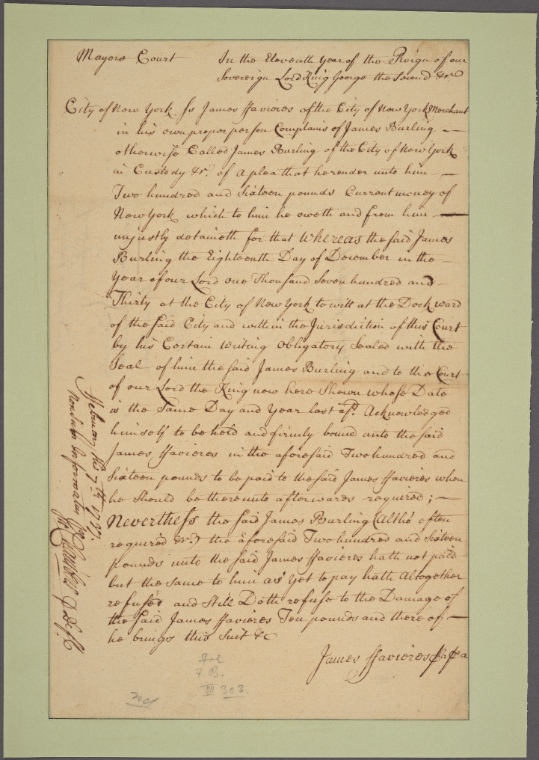 Mayors Court In the Eleventh Year of the Reign of our
Sovereign Lord King George the Second &c
City of New York Ss James ffavieres of the City of New York Merchant
in his own proper person Complains of James Burling
otherwise Called James Burling of the City of New York
in Custody &c. of a plea that he render unto him
Two hundred and Sixteen pounds Current money of
New York which to him he oweth and from him
unjustly detaineth for that Whereas the said James
Burling the Eighteenth Day of December in the
Year of our Lord One Thousand Seven hundred and
Thirty at the City of New York to witt at the Dock ward
of the said City and within the Jurisdiction of this Court
by his Certain Writing Obligatory Sealed with the
Seal of him the said James Burling and to the Court
of our Lord the King now here Shown whose Date
is the Same Day and Year last afs.d Acknowledged
himself to be held and firmly bound unto the said
James ffavieres in the aforesaid Two hundred and
Sixteen pounds to be paid to the said James ffavieres when
he should be thereunto afterwards required;
Nevertheless the said James Burling (altho' often
required &c.) the aforesaid Two hundred and Sixteen
pounds unto the said James ffavieres hath not paid
but the same to him as yet to pay hath Altogether
refused and Still Doth refuse to the Damage of
the said James ffavieres Ten pounds and there of
he brings this Suit &c
James ffavieres
ffebruary the 7th 1737.
non sum Informatus
303